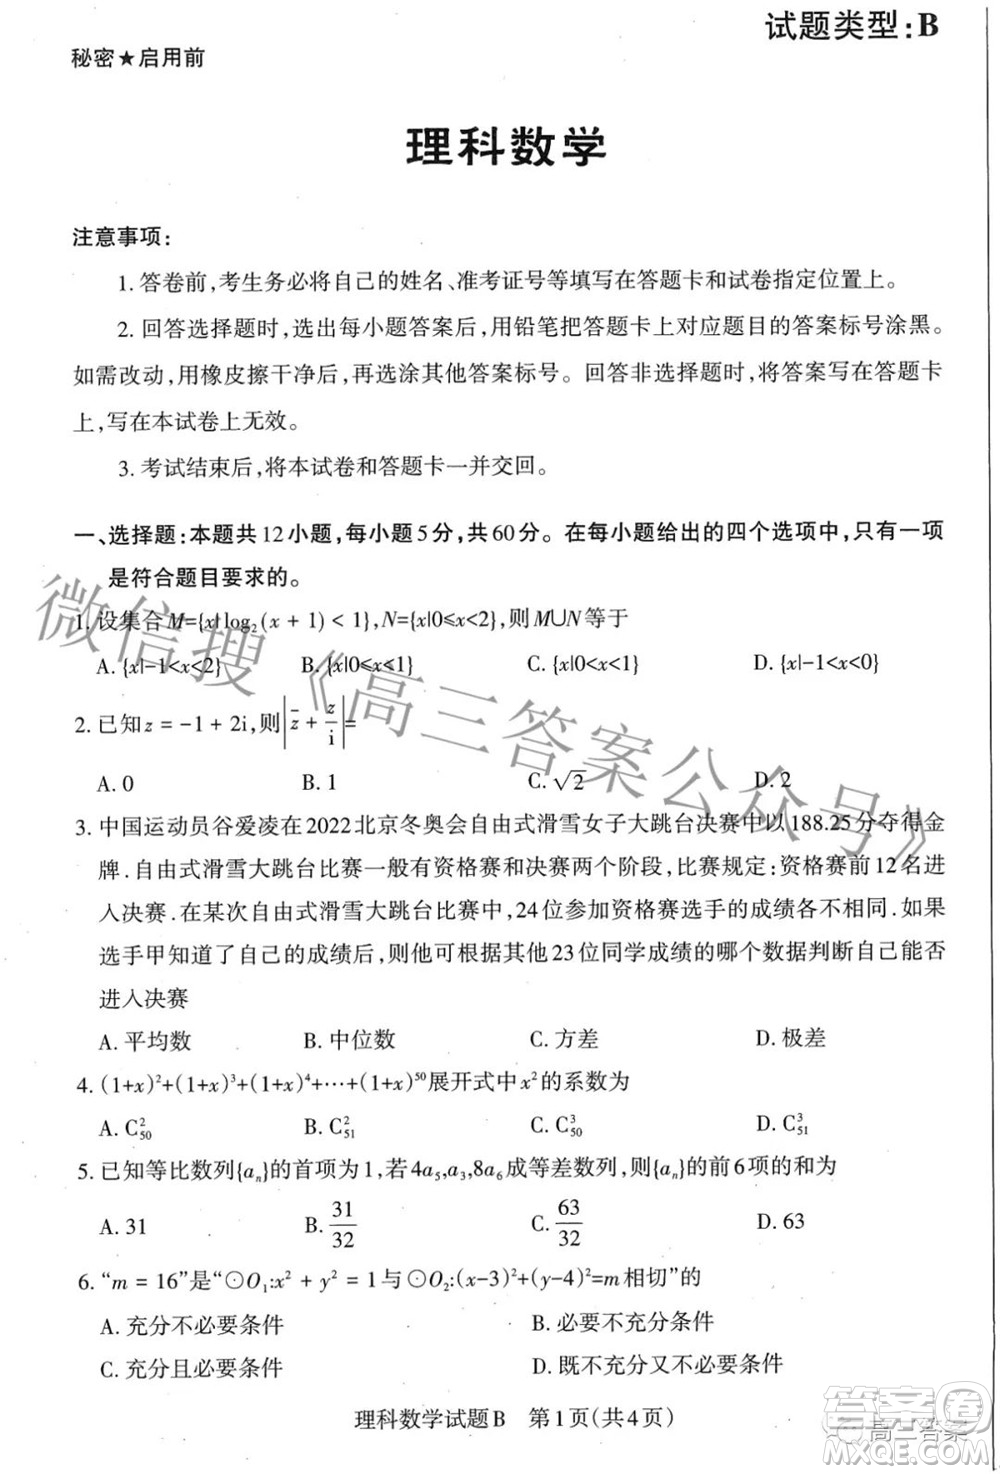 试题类型:B
秘密★启用前
理科数学
注意事项:
1. 答卷前,考生务必将自己的姓名、准考证号等填写在答题卡和试卷指定位置上。
2. 回答选择题时,选出每小题答案后,用铅笔把答题卡上对应题目的答案标号涂黑。
如需改动,用橡皮擦干净后,再选涂其他答案标号。回答非选择题时,将答案写在答题卡
上,写在本试卷上无效。
3. 考试结束后,将本试卷和答题卡一并交回。
一、选择题:本题共12小题,每小题5分,共60分。在每小题给出的四个选项中,只有一项
是符合题目要求的。
1. 设集合M={x|log₂(x + 1) < 1},N={x|0≤x<2},则M∪N等于
A. {x|-1<x<2} B. {x|0≤x≤1} C. {x|0<x<1} D. {x|-1<x<0}
2. 已知z = -1 + 2i,则|z̄ + z/i|=
A. 0 B. 1 C. √2 D. 2
3. 中国运动员谷爱凌在2022北京冬奥会自由式滑雪女子大跳台决赛中以188.25分夺得金
牌.自由式滑雪大跳台比赛一般有资格赛和决赛两个阶段,比赛规定:资格赛前12名进
入决赛.在某次自由式滑雪大跳台比赛中,24位参加资格赛选手的成绩各不相同.如果
选手甲知道了自己的成绩后,则他可根据其他23位同学成绩的哪个数据判断自己能否
进入决赛
A. 平均数 B. 中位数 C. 方差 D. 极差
4. (1+x)²+(1+x)³+(1+x)⁴+⋯+(1+x)⁵⁰展开式中x²的系数为
A. C²₅₀ B. C²₅₁ C. C³₅₀ D. C³₅₁
5. 已知等比数列{aₙ}的首项为1,若4a₅,a₃,8a₆成等差数列,则{aₙ}的前6项的和为
A. 31 B. 31/32 C. 63/32 D. 63
6. “m = 16”是“⊙O₁:x² + y² = 1与⊙O₂:(x-3)²+(y-4)²=m相切”的
A. 充分不必要条件 B. 必要不充分条件
C. 充分且必要条件 D. 既不充分又不必要条件
理科数学试题B 第1页(共4页)
微信搜《高三答案公众号》
高三答案
答案圈
MXQE.COM